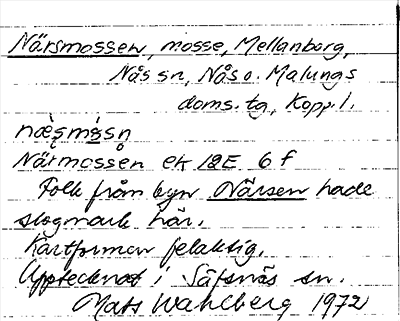 Närsmossen, mosse, Mellanborg,
Nås sn, Nås o. Malungs
doms. tg, Kopp. l.
Närmossen ek 12E 6f
Folk från byn Närsen hade
slogmark här.
Kartformen felaktig.
Upptecknat i Säfsnäs sn.
Mats Wahlberg 1972